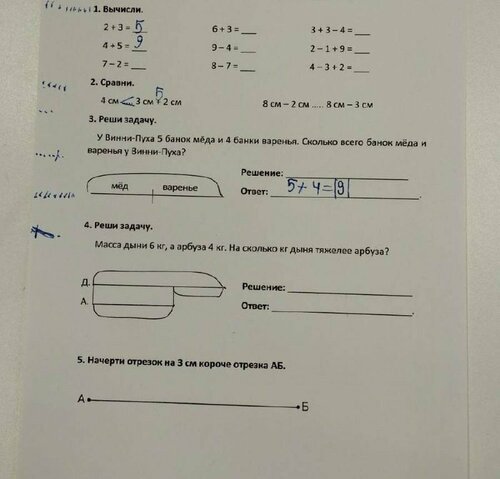 1. Вычисли.
2 + 3 = 5 6 + 3 = ___ 3 + 3 – 4 = ___
4 + 5 = 9 9 – 4 = ___ 2 – 1 + 9 = ___
7 – 2 = ___ 8 – 7 = ___ 4 – 3 + 2 = ___
2. Сравни.
5
4 см < 3 см + 2 см 8 см – 2 см ..... 8 см – 3 см
3. Реши задачу.
У Винни-Пуха 5 банок мёда и 4 банки варенья. Сколько всего банок мёда и
варенья у Винни-Пуха?
Решение: ___
мёд варенье
Ответ: 5 + 4 = 9
4. Реши задачу.
Масса дыни 6 кг, а арбуза 4 кг. На сколько кг дыня тяжелее арбуза?
Д.
Решение: ___
А.
Ответ: ___
5. Начерти отрезок на 3 см короче отрезка АБ.
А Б